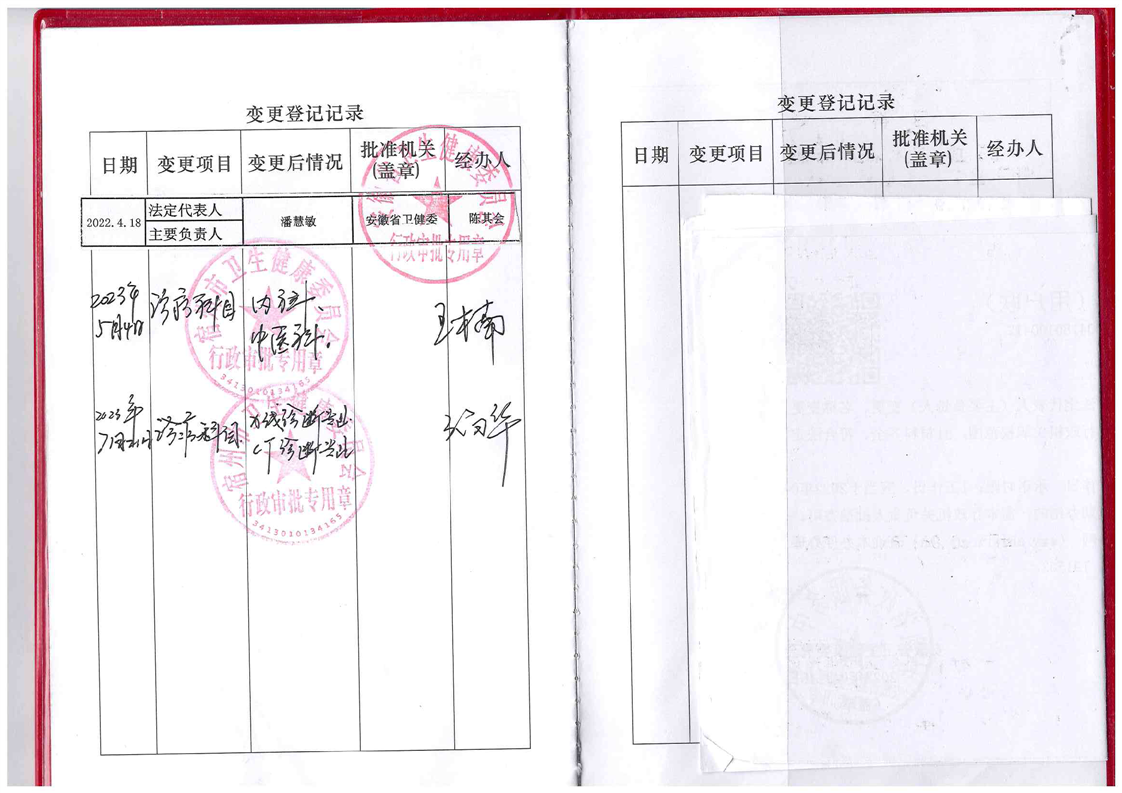 变更登记记录
日期 变更项目 变更后情况 批准机关(盖章) 经办人
2022.4.18 法定代表人 潘慧敏 安徽省卫健委 陈其会
主要负责人
安徽省卫生健康委员会
行政审批专用章
2023年 诊疗科目 内科、
5月4日 中医科。
宿州市卫生健康委员会
行政审批专用章
3413010134165
2023年 诊疗科目 X线诊断专业
CT诊断专业
宿州市卫生健康委员会
行政审批专用章
3413010134165
变更登记记录
日期 变更项目 变更后情况 批准机关(盖章) 经办人